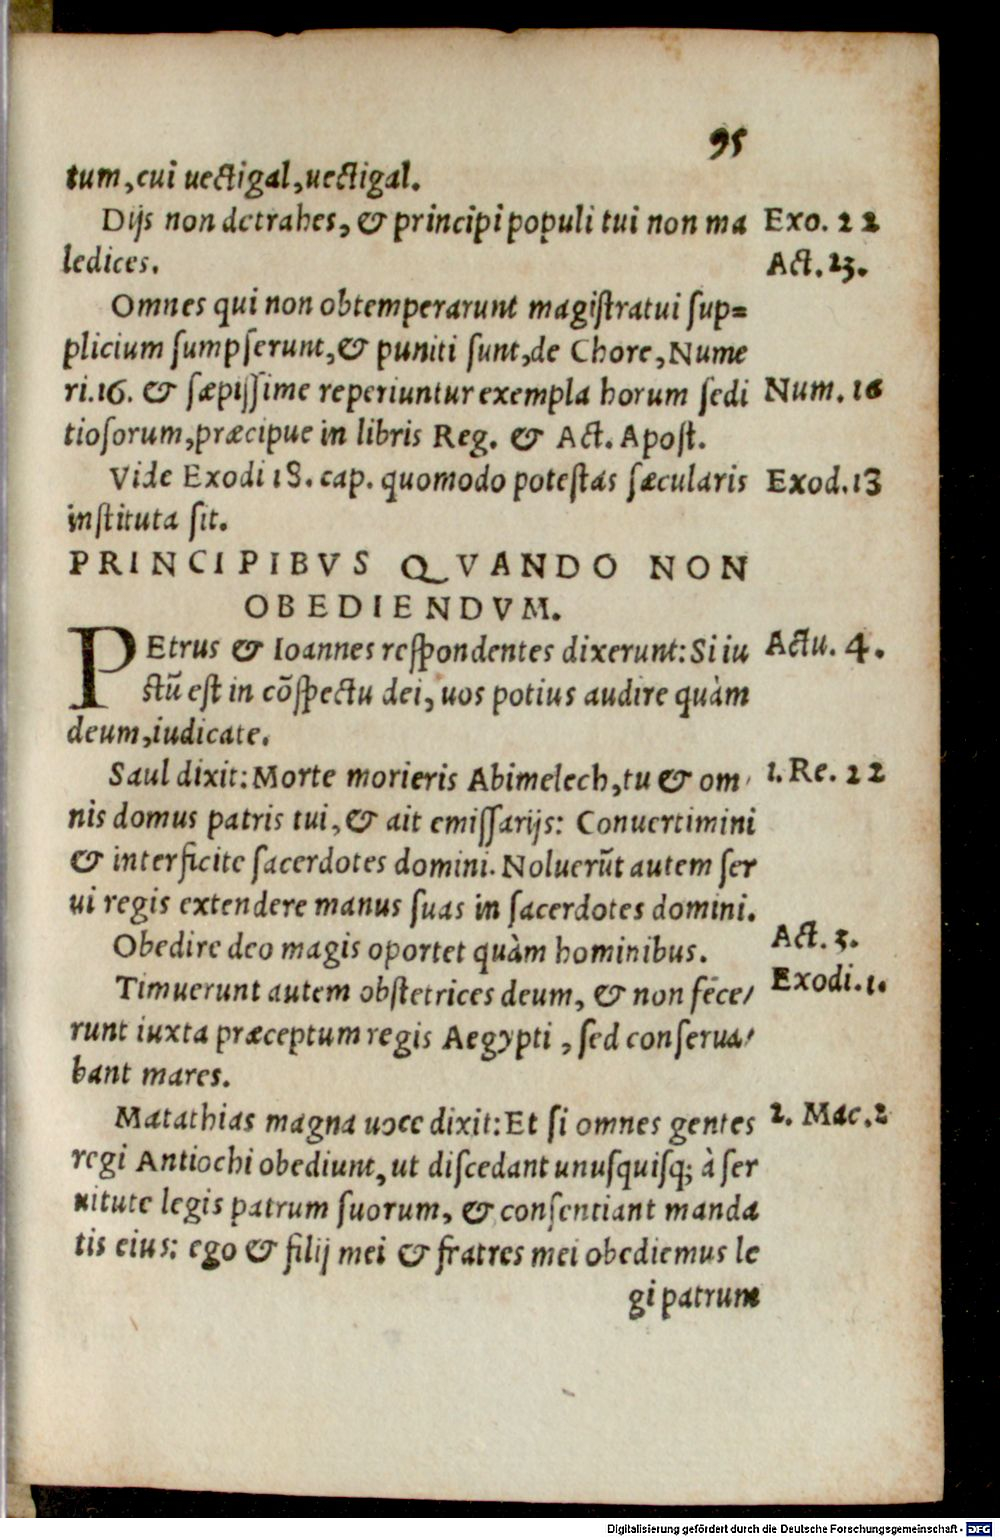 95
tum, cui uectigal, uectigal.
Dijs non detrahes, & principi populi tui non ma Exo. 22
ledices. Act. 23.
Omnes qui non obtemperarunt magistratui sup=
plicium sumpserunt, & puniti sunt, de Chore, Nume
ri. 16. & sæpissime reperiuntur exempla horum sedi Num. 16
tiosorum, præcipue in libris Reg. & Act. Apost.
Vide Exodi 18. cap. quomodo potestas sæcularis Exod. 13
instituta sit.
PRINCIPIBVS QVANDO NON
OBEDIENDVM.
PEtrus & Ioannes respondentes dixerunt: Si iu Actu. 4.
stũ est in cõspectu dei, uos potius audire quàm
deum, iudicate.
Saul dixit: Morte morieris Abimelech, tu & om 1. Re. 22
nis domus patris tui, & ait emissarijs: Conuertimini
& interficite sacerdotes domini. Noluerũt autem ser
ui regis extendere manus suas in sacerdotes domini.
Obedire deo magis oportet quàm hominibus. Act. 5.
Timuerunt autem obstetrices deum, & non fece/ Exodi. 1.
runt iuxta præceptum regis Aegypti, sed conserua/
bant mares.
Matathias magna uoce dixit: Et si omnes gentes 2. Mac. 2
regi Antiochi obediunt, ut discedant unusquisq; à ser
uitute legis patrum suorum, & consentiant manda
tis eius: ego & filij mei & fratres mei obediemus le
gi patrum
Digitalisierung gefördert durch die Deutsche Forschungsgemeinschaft - DFG